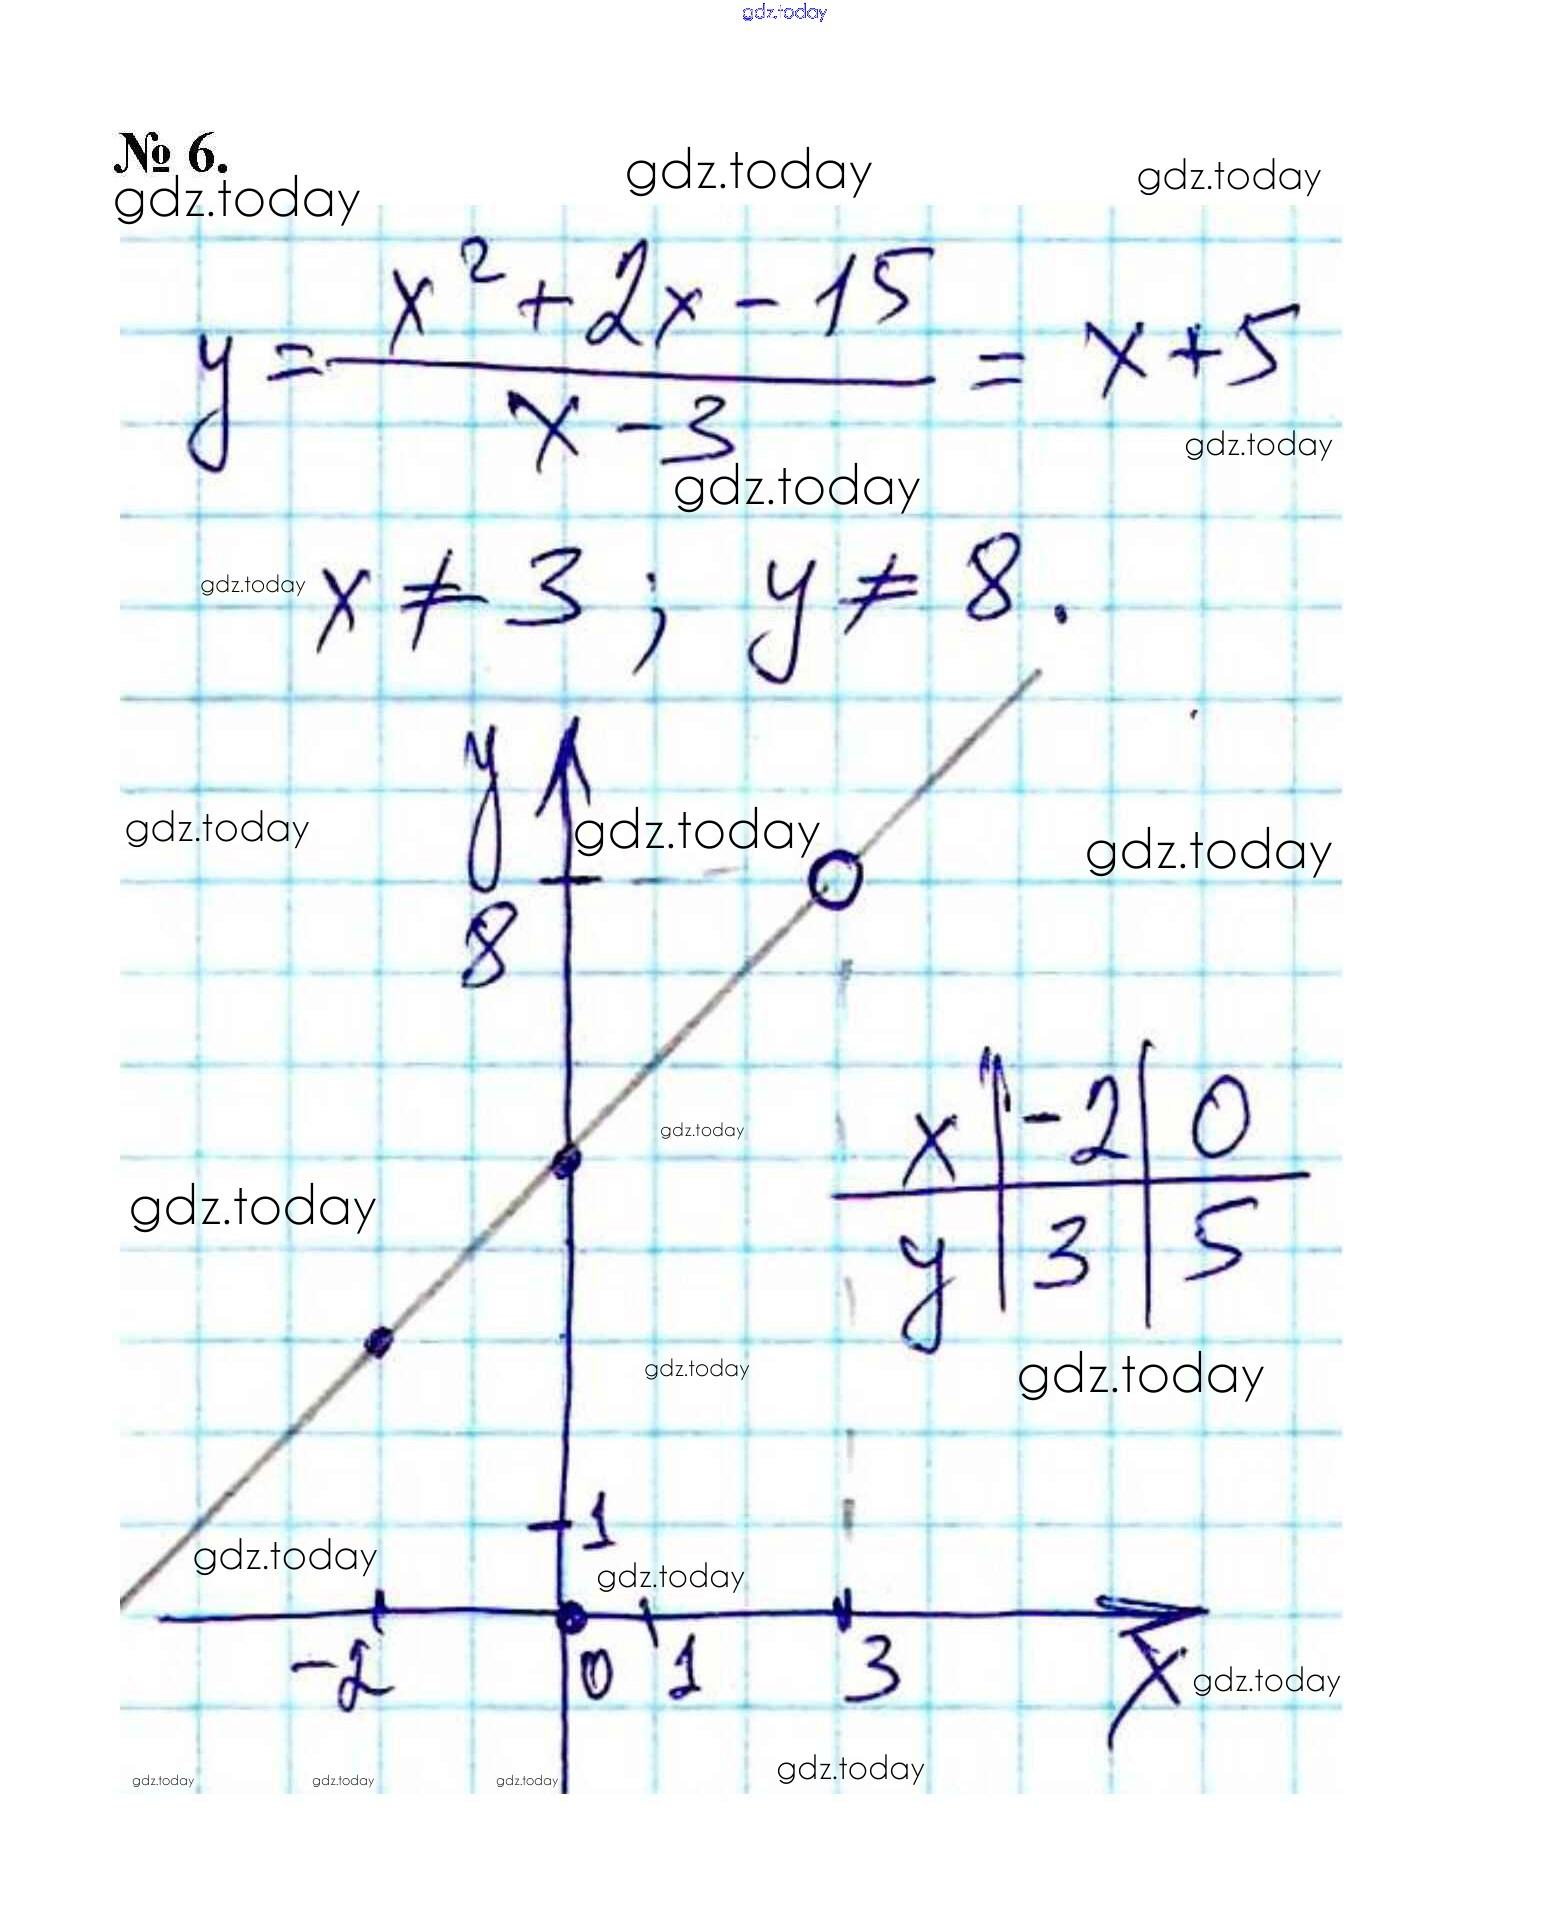 gdz.today
№ 6.
gdz.today gdz.today gdz.today
y = (x² + 2x - 15) / (x - 3) = x + 5
gdz.today
gdz.today
gdz.today x ≠ 3 ; y ≠ 8 .
y
gdz.today gdz.today gdz.today
8
gdz.today
x | -2 | 0
gdz.today
y | 3 | 5
gdz.today gdz.today
1
gdz.today gdz.today
-2 0 1 3 x gdz.today
gdz.today gdz.today gdz.today gdz.today